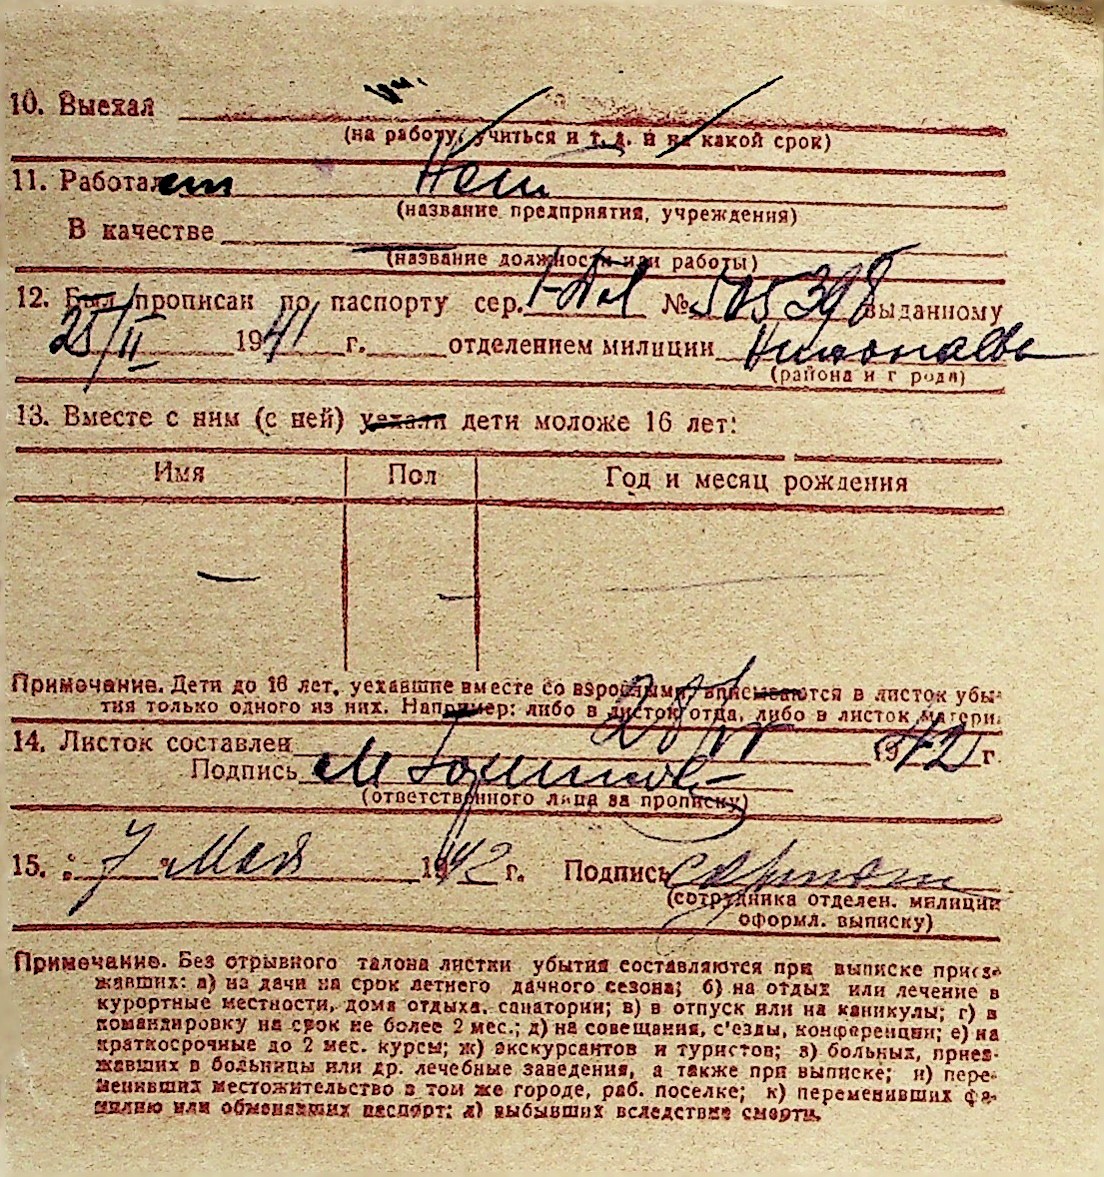 10. Выехал
(на работу, учиться и т. д. и на какой срок)
11. Работает Нет
(название предприятия, учреждения)
В качестве
(название должности или работы)
12. Был прописан по паспорту сер. № 505398 выданному
25/II 1941 г. отделением милиции
(района и города)
13. Вместе с ним (с ней) уехали дети моложе 16 лет:
Имя Пол Год и месяц рождения
— — —
Примечание. Дети до 16 лет, уехавшие вместе со взрослыми, вписываются в листок убы-
тия только одного из них. Например: либо в листок отца, либо в листок матери.
14. Листок составлен 1942 г.
Подпись
(ответственного лица за прописку)
15. „ 7 " Мая 1942 г. Подпись
(сотрудника отделен. милиции
оформл. выписку)
Примечание. Без отрывного талона листки убытия составляются при выписке приез-
жавших: а) на дачи на срок летнего дачного сезона; б) на отдых или лечение в
курортные местности, дома отдыха, санатории; в) в отпуск или на каникулы; г) в
командировку на срок не более 2 мес.; д) на совещания, с'езды, конференции; е) на
краткосрочные до 2 мес. курсы; ж) экскурсантов и туристов; з) больных, приез-
жавших в больницы или др. лечебные заведения, а также при выписке; и) пере-
менивших местожительство в том же городе, раб. поселке; к) переменивших фа-
милию или обменявших паспорт; л) выбывших вследствие смерти.